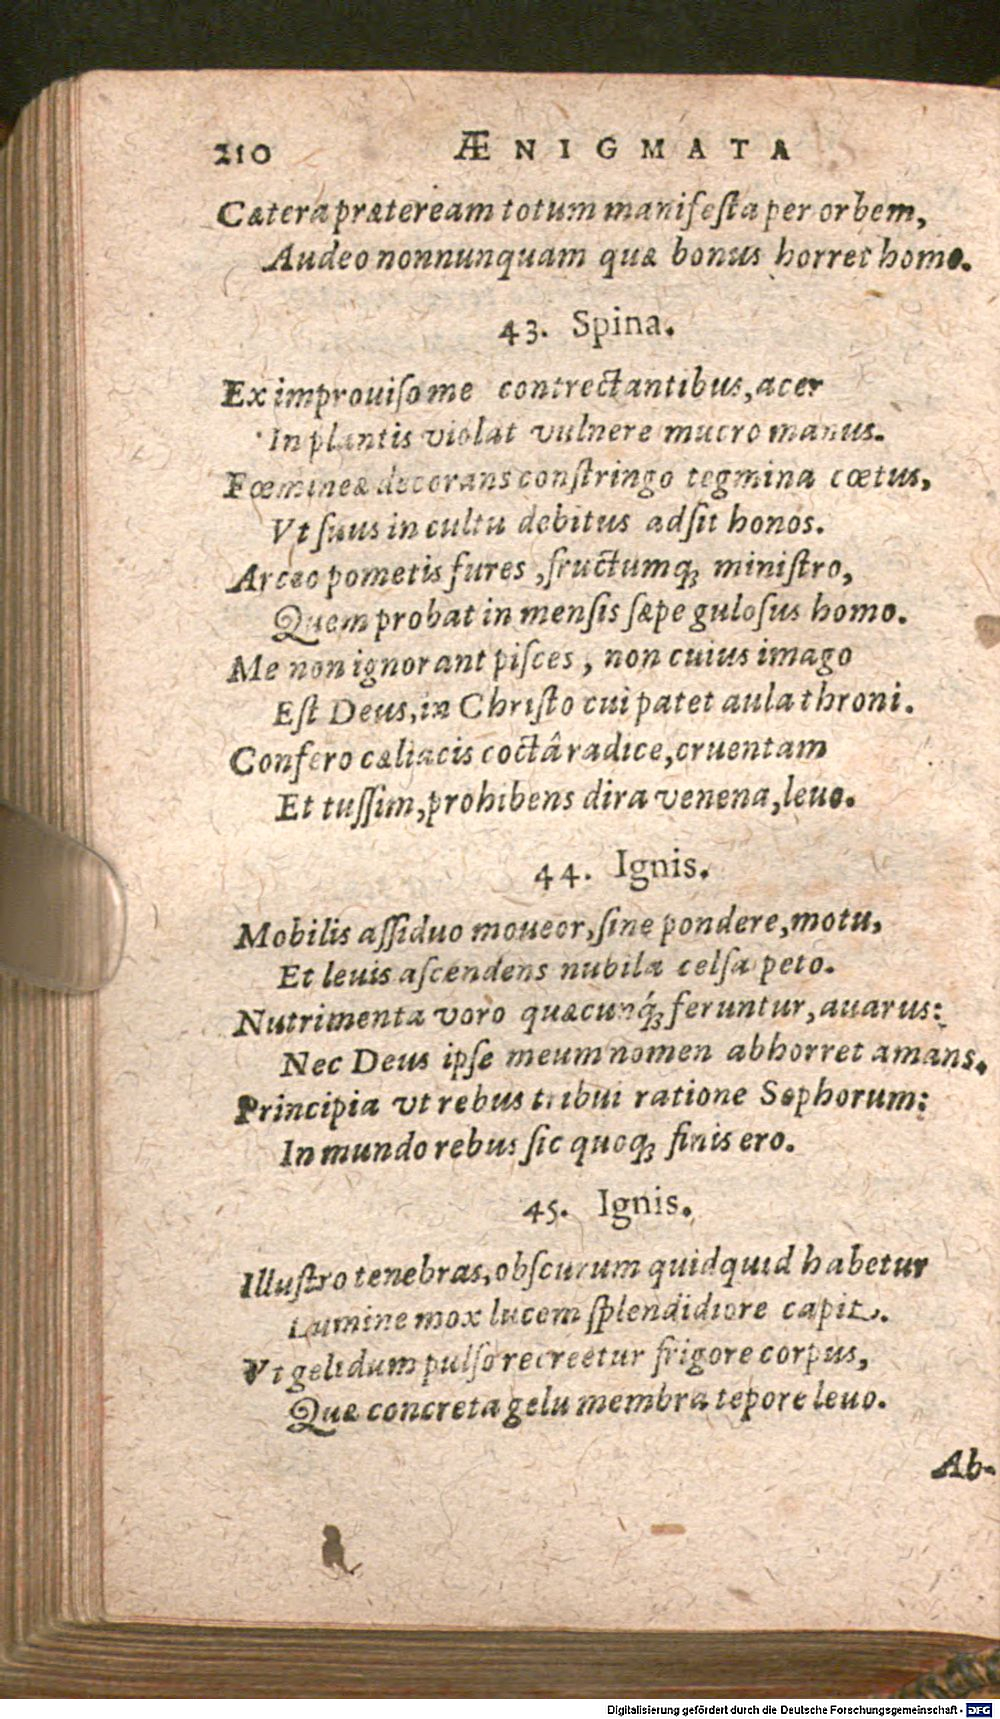 210 ÆNIGMATA
Cætera præteream totum manifesta per orbem,
Audeo nonnunquam quæ bonus horret homo.
43. Spina.
Ex improuiſo me contrectantibus, acer
In plantis violat vulnere mucro manus.
Fœmineæ decorans conſtringo tegmina cœtus,
Vt ſuus in cultu debitus adſit honos.
Arceo pometis fures, fructumq́; miniſtro,
Quem probat in menſis ſæpe guloſus homo.
Me non ignorant piſces, non cuius imago
Eſt Deus, in Chriſto cui patet aula throni.
Confero cæliacis coctâ radice, cruentam
Et tuſſim, prohibens dira venena, leuo.
44. Ignis.
Mobilis aſſiduo moueor, ſine pondere, motu,
Et leuis aſcendens nubila celſa peto.
Nutrimenta voro quæcunq́; feruntur, auarus:
Nec Deus ipſe meum nomen abhorret amans.
Principia vt rebus tribui ratione Sophorum:
In mundo rebus ſic quoq; finis ero.
45. Ignis.
Illuſtro tenebras, obſcurum quidquid habetur
Lumine mox lucem ſplendidiore capit.
Vt gelidum pulſo recreetur frigore corpus,
Quæ concreta gelu membra tepore leuo.
Ab-
Digitalisierung gefördert durch die Deutsche Forschungsgemeinschaft - DFG